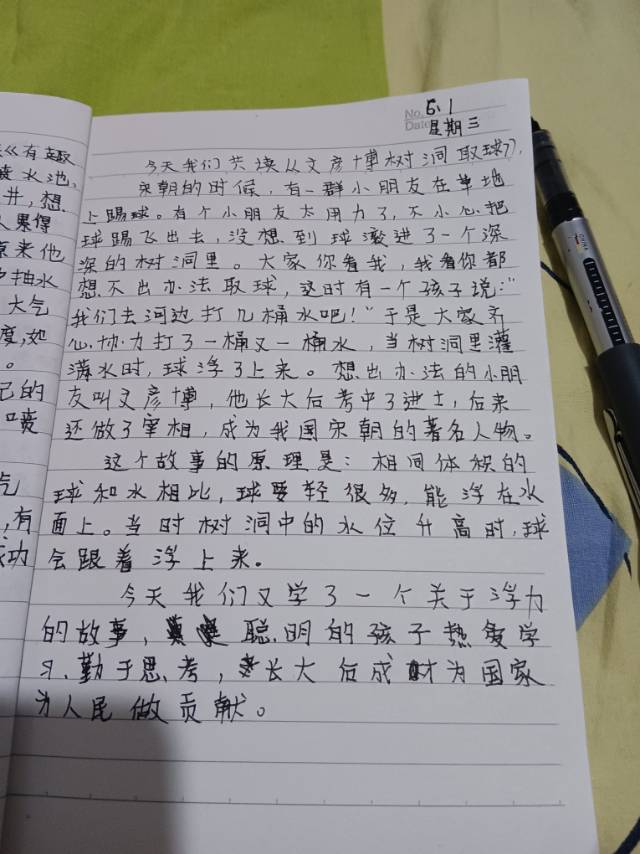 No. 6.1
Date 星期三
今天我们共读《文彦博树洞取球》,
宋朝的时候,有一群小朋友在草地
上踢球。有个小朋友太用力了,不小心把
球踢飞出去,没想到球滚进了一个深
深的树洞里。大家你看我,我看你都
想不出办法取球,这时有一个孩子说:“
我们去河边打几桶水吧!”于是大家齐
心协力打了一桶又一桶水,当树洞里灌
满水时,球浮了上来。想出办法的小朋
友叫文彦博,他长大后考中了进士,后来
还做了宰相,成为我国宋朝的著名人物。
这个故事的原理是:相同体积的
球和水相比,球要轻很多,能浮在水
面上。当时树洞中的水位升高时,球
会跟着浮上来。
今天我们又学了一个关于浮力
的故事,聪明的孩子热爱学
习、勤于思考,长大后成才为国家
为人民做贡献。
《有趣
水池,
井,想
人果得
原来他
抽水
大气
度,如
。
己的
喷
气
,有
功